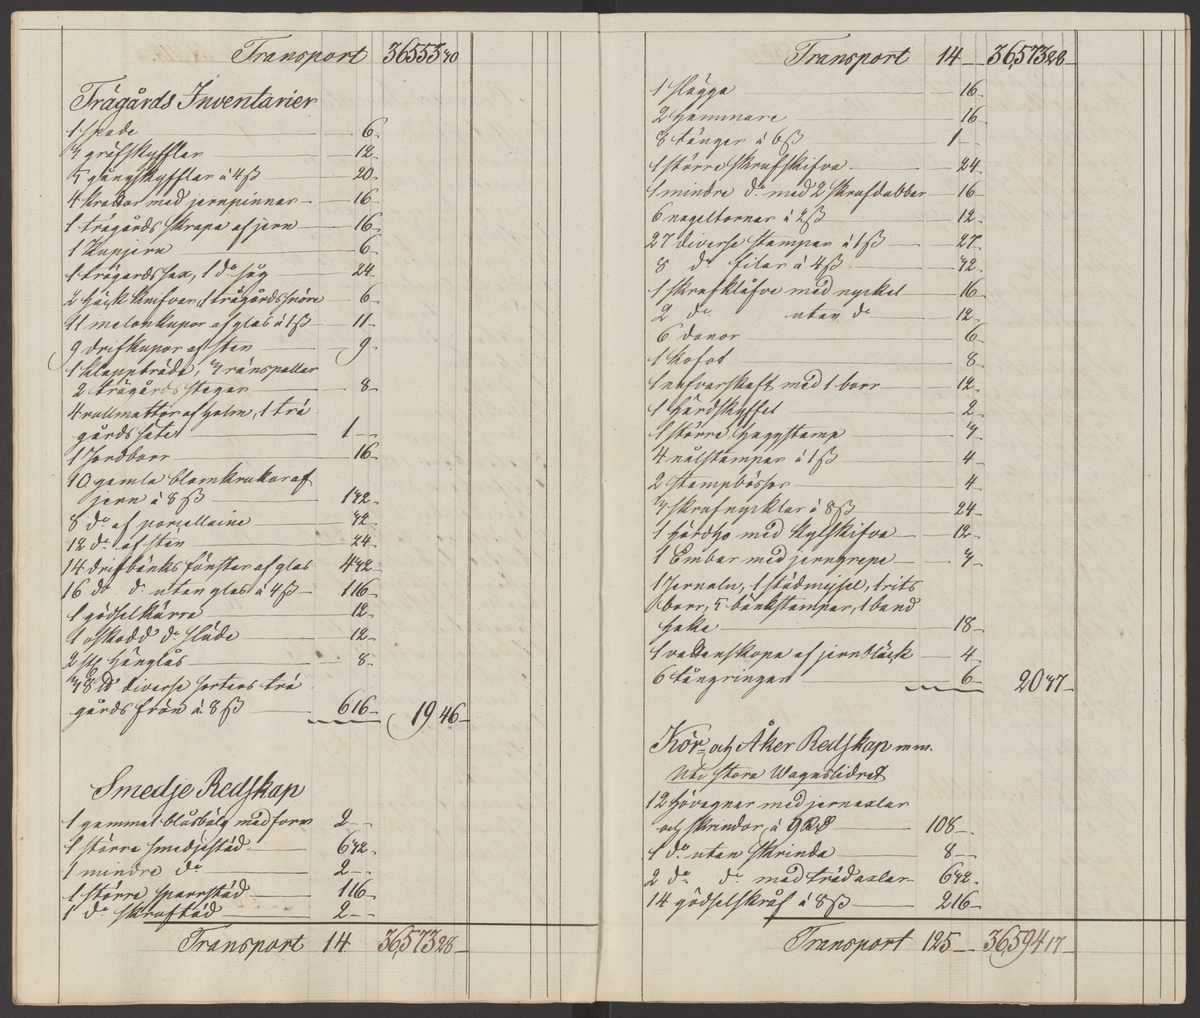 Transport 36553 40
Trägårds Inventarier
1 spade 6
3 gräfskyfflar 12
5 gångskyfflar à 4 ß 20
4 krattor med jernpinnar 16
1 trägårds skrapa af jern 16
1 kupjern 6
1 trägårdssax, 1 do såg 24
2 häckknifvar, 1 trägårdssnöre 6
11 melonkupor af glas à 1 ß 11
9 drifkupor af sten 9
1 klappträde, 3 ränspallar
2 trägårds stegar 8
4 rullmattor af halm, 1 trä
gårds säte 1
1 Jordborr 16
10 gamla blomkrukor af
jern à 8 ß 1 32
8 do af porcellaine 32
12 do af sten 24
14 drifbänksfönster af glas 4 32
16 do do utan glas à 4 ß 1 16
1 gödselkärra 12
1 oskodd do släde 12
2 st hänglås 8
38 diverse sorters trä
gårds frön à 8 ß 6 16 19 46
Smedje Redskap
1 gammal blåsbälg med form 2
1 större smedjestäd 6 32
1 mindre do 2
1 större sparrstäd 1 16
1 do skrufstäd 2
Transport 14 36,573 28
Transport 14 36,573 28
1 slägga 16
2 hammare 16
8 tänger à 6 ß 1
1 större skrufskifva 24
1 mindre do med 2 skrufdubbar 16
6 nageltornar à 2 ß 12
27 diverse stampar à 1 ß 27
8 do filar à 4 ß 32
1 skrufklåfve med nyckel 16
2 do utan do 12
6 donor 6
1 kofot 8
1 nafvarskaft med 1 borr 12
1 härdskyffel 2
1 större huggstamp 3
4 nålstampar à 1 ß 4
2 stampbössor 4
3 skrufnycklar à 8 ß 24
1 härdho med kylskifva 12
1 Embar med jerngrepe 3
1 Jernaln, 1 städmejsel, 1 rits
borr, 5 bänkstampar, 1 band
hake 18
1 vattenskopa af jernbläck 4
6 tångringar 6 20 37
Kör- och Åker Redskap m.m.
Uti stora Wagnslidret
12 hövagnar med jernaxlar
och skrindor, à 9 Rd 108
1 do utan skrinda 8
2 do do med trädaxlar 6 32
14 gödselskråf à 8 ß 2 16
Transport 125 36,594 17